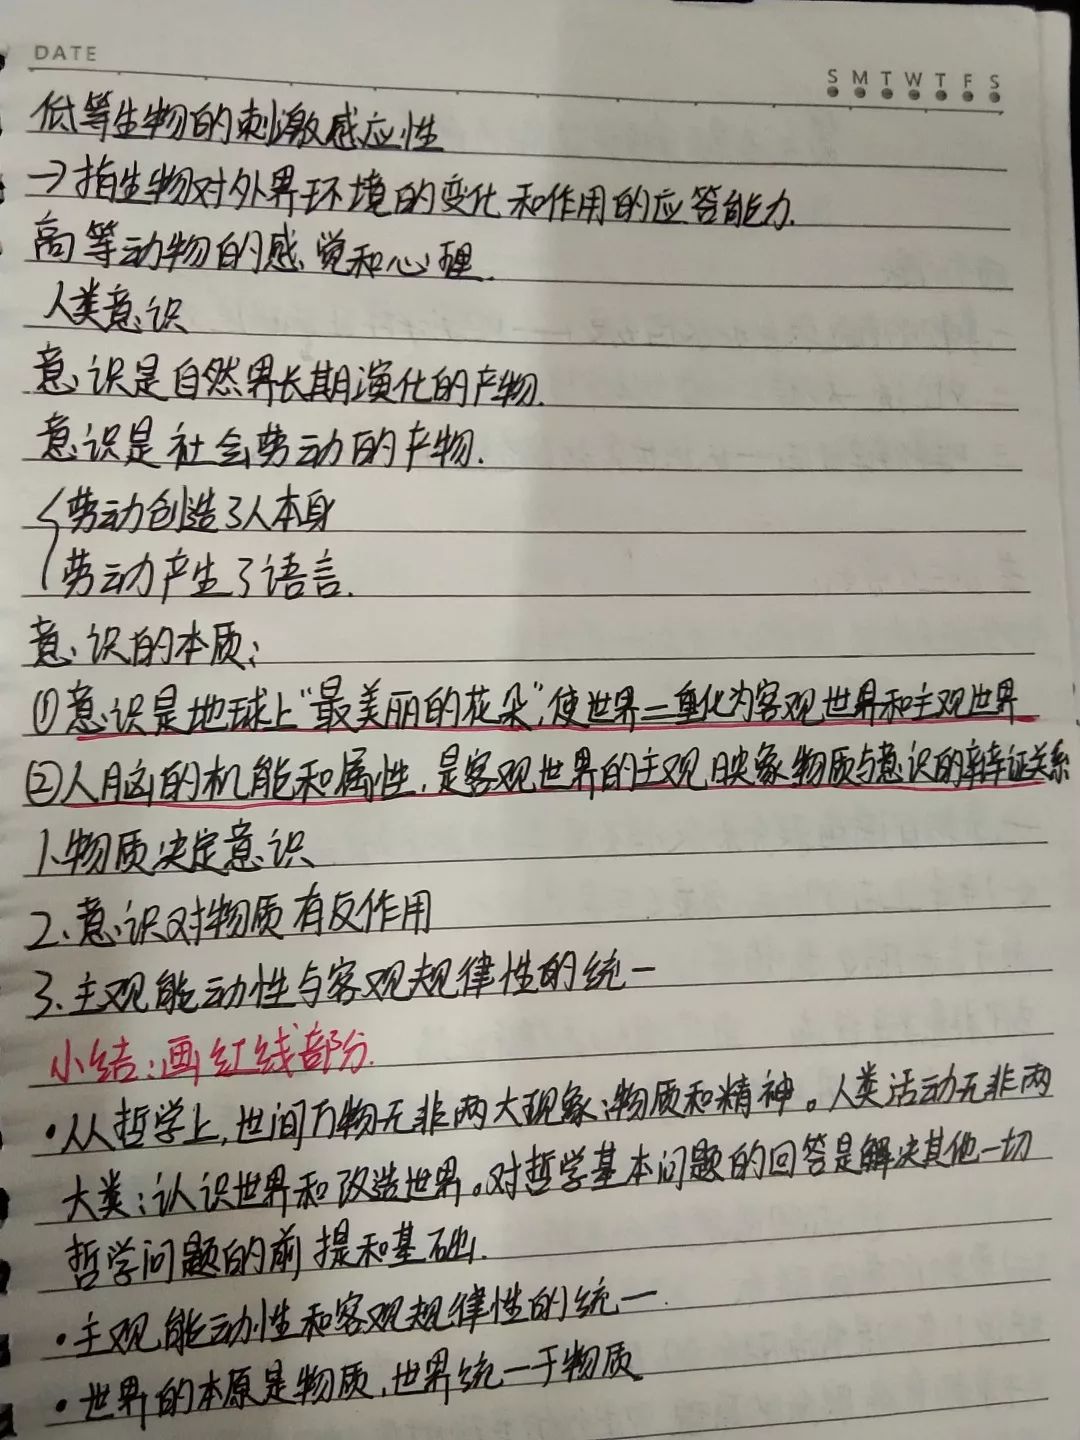 DATE
S M T W T F S
低等生物的刺激感应性
→指生物对外界环境的变化和作用的应答能力.
高等动物的感觉和心理.
人类意识
意识是自然界长期演化的产物.
意识是社会劳动的产物.
劳动创造了人本身
劳动产生了语言.
意识的本质:
①意识是地球上"最美丽的花朵",使世界二重化为客观世界和主观世界
②人脑的机能和属性,是客观世界的主观映象物质与意识的辩证关系
1.物质决定意识
2.意识对物质有反作用
3.主观能动性与客观规律性的统一
小结:画红线部分.
·从哲学上,世间万物无非两大现象:物质和精神。人类活动无非两
大类:认识世界和改造世界。对哲学基本问题的回答是解决其他一切
哲学问题的前提和基础.
·主观能动性和客观规律性的统一.
·世界的本原是物质,世界统一于物质.